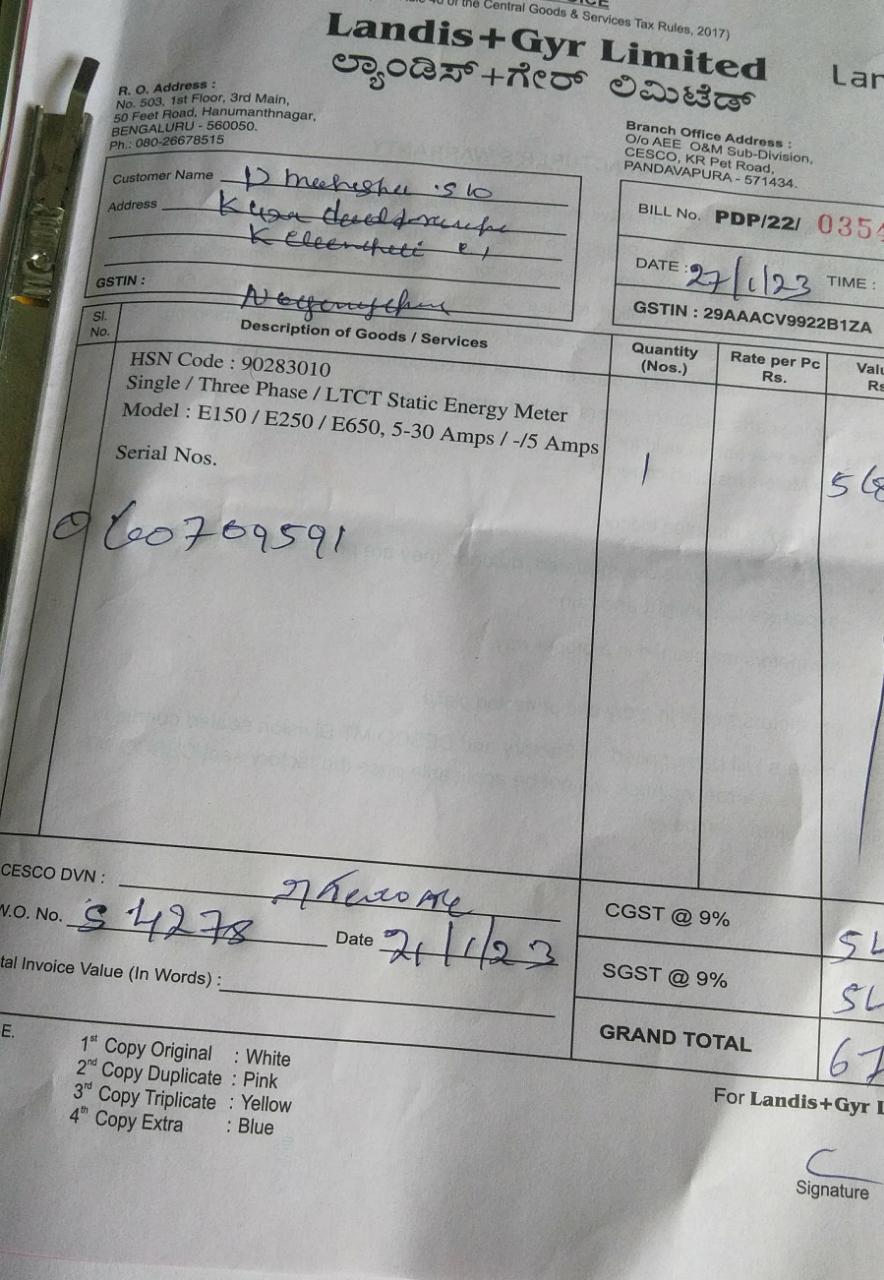 of the Central Goods & Services Tax Rules, 2017)
Landis+Gyr Limited
ಲ್ಯಾಂಡಿಸ್+ಗೇರ್ ಲಿಮಿಟೆಡ್
R. O. Address :
No. 503, 1st Floor, 3rd Main,
50 Feet Road, Hanumanthnagar,
BENGALURU - 560050.
Ph.: 080-26678515
Branch Office Address :
O/o AEE O&M Sub-Division,
CESCO, KR Pet Road,
PANDAVAPURA - 571434.
Customer Name
Address
GSTIN :
BILL No. PDP/22/ 0354
DATE : 27/1/23 TIME :
GSTIN : 29AAACV9922B1ZA
Sl. No. Description of Goods / Services Quantity (Nos.) Rate per Pc Rs.
HSN Code : 90283010
Single / Three Phase / LTCT Static Energy Meter
Model : E150 / E250 / E650, 5-30 Amps / -/5 Amps
Serial Nos. 1
CESCO DVN :
W.O. No. S 4278 Date 21/1/23
tal Invoice Value (In Words) :
CGST @ 9%
SGST @ 9%
GRAND TOTAL 67
E. 1st Copy Original : White
2nd Copy Duplicate : Pink
3rd Copy Triplicate : Yellow
4th Copy Extra : Blue
For Landis+Gyr L
Signature